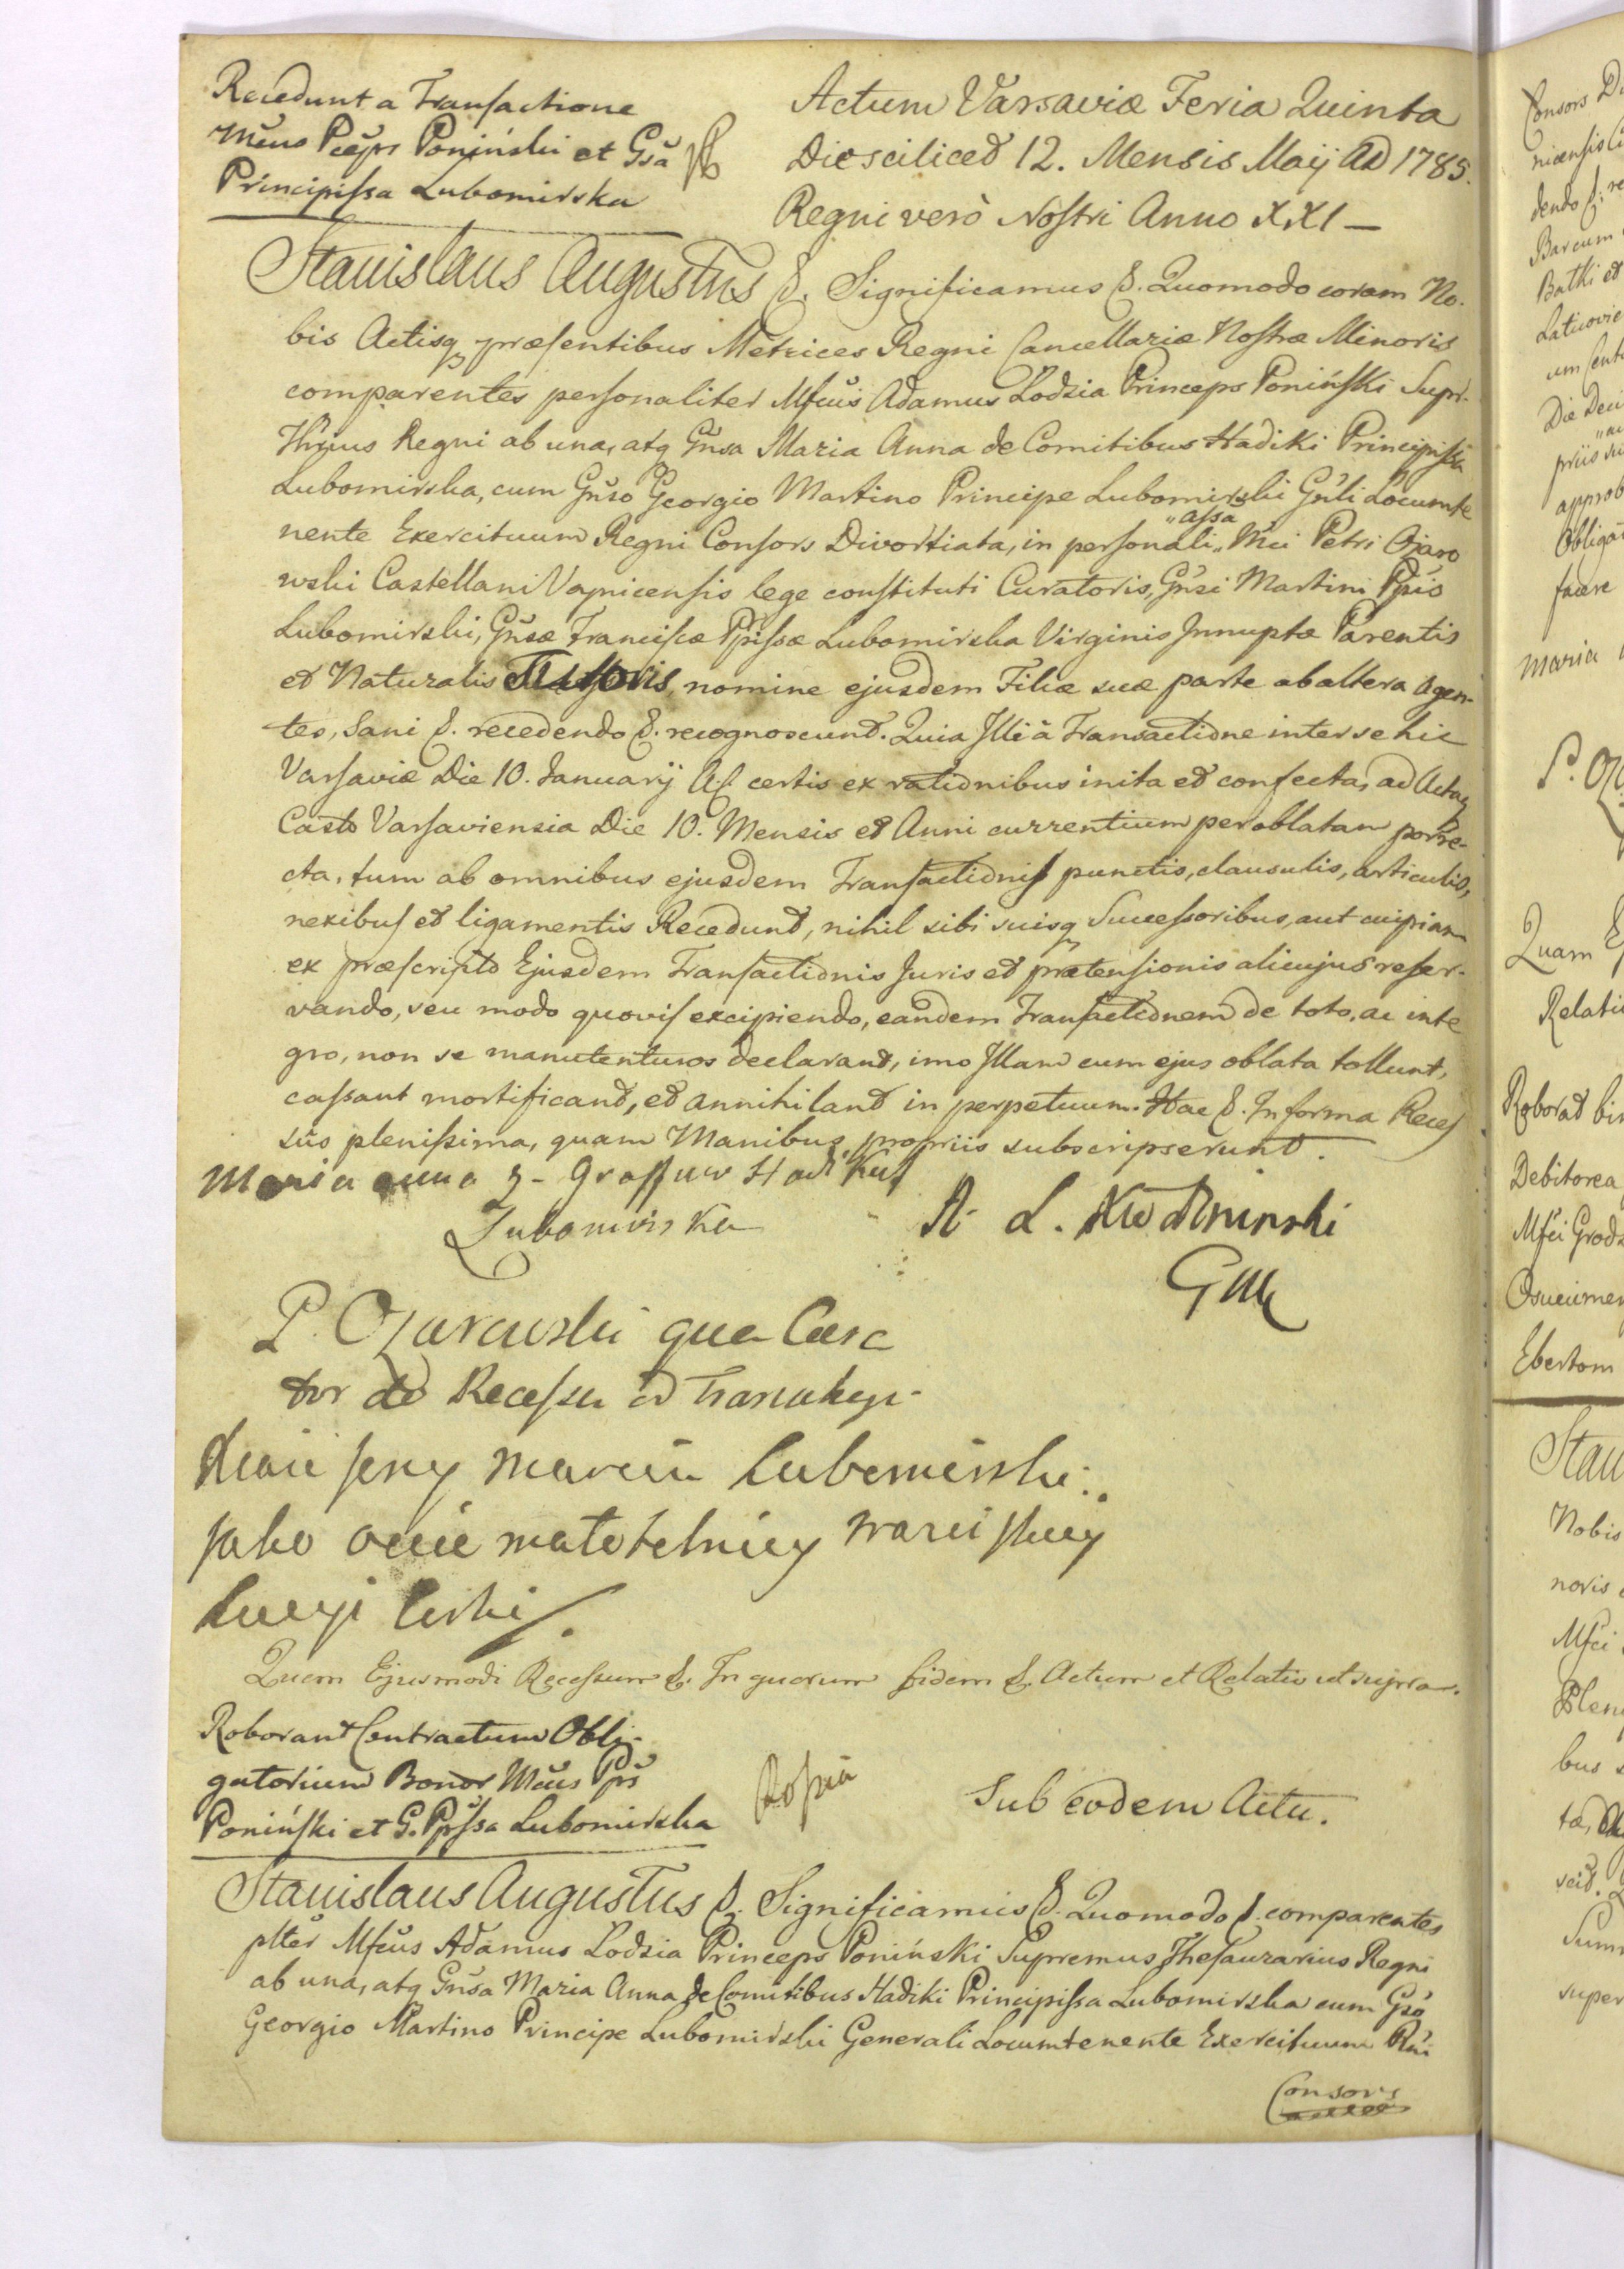 Recedunt a Transactione
Mcus Pceps Poniński et Gsa
Principissa Lubomirska
Actum Varsaviæ Feria Quinta
Die scilicet 12. Mensis Maij AD 1785.
Regni verò Nostri Anno XXI —
Stanislaus Augustus &. Significamus &. Quomodo coram No-
bis Actisq præsentibus Metrices Regni Cancellariæ Nostræ Minoris
comparentes personaliter Mfcus Adamus Lodzia Princeps Poniński Supr.
Thrius Regni ab una, atq Gnsa Maria Anna de Comitibus Hadiki Principissa
Lubomirska, cum Gnso Georgio Martino Principe Lubomirski Gnli Locumte
nente Exercituum Regni Consors Divortiata, in personali „assa„ Mci Petri Ożaro
wski Castellani Voynicensis lege constituti Curatoris, Gnsi Martini Ppis
Lubomirski, Gnsæ Franciscæ Ppissæ Lubomirska Virginis Innuptæ Parentis
et Naturalis Tutoris, nomine ejusdem Filiæ suæ parte ab altera agen-
tes, Sani &. recedendo &. recognoscunt. Quia Illi à Transactione inter se hic
Varsaviæ Die 10. Januarij A. certis ex rationibus inita et confecta, ad Actaq
Casto Varsaviensia Die 10. Mensis et Anni currentium per oblatam porre-
cta, tum ab omnibus ejusdem Transactionis punctis, clausulis, articulis,
nexibus et ligamentis Recedunt, nihil sibi suisq Successoribus, aut cuipiam
ex præscripto Ejusdem Transactionis Juris et prætensionis alicujus reser-
vando, seu modo quovis excipiendo, eandem Transactionem de toto, ac inte
gro, non se manutenturos declarant, imo Illam cum ejus oblata tollunt,
cassant mortificant, et annihilant in perpetuum. Hac &. In forma Reces
sûs plenissima, quam Manibus propriis subscripserunt.
Maria anna z- Graffuw Hadikuf
Lubomirska
A. L. Xże Poninski
P. Ożarowski qua Cura
tor do Recessu od Tranzakcyi
Xiąże Jerzy Marcin Lubomirski
jako ociec małoletniey
Quem Ejusmodi Recessum &. In quorum fidem &. Actum et Relatio ut supra.
Roborant Contractum Obli-
gatorium Bonor Mcus Pps
Poniński et G. Ppssa Lubomirska
Sub eodem Actu.
Stanislaus Augustus &. Significamus &. Quomodo &. comparentes
plter Mfcus Adamus Lodzia Princeps Poniński Supremus Thesaurarius Regni
ab una, atq Gnsa Maria Anna de Comitibus Hadzki Principissa Lubomirska cum Gso
Georgio Martino Principe Lubomirski Generali Locumtenente Exercituum Rni
Consors